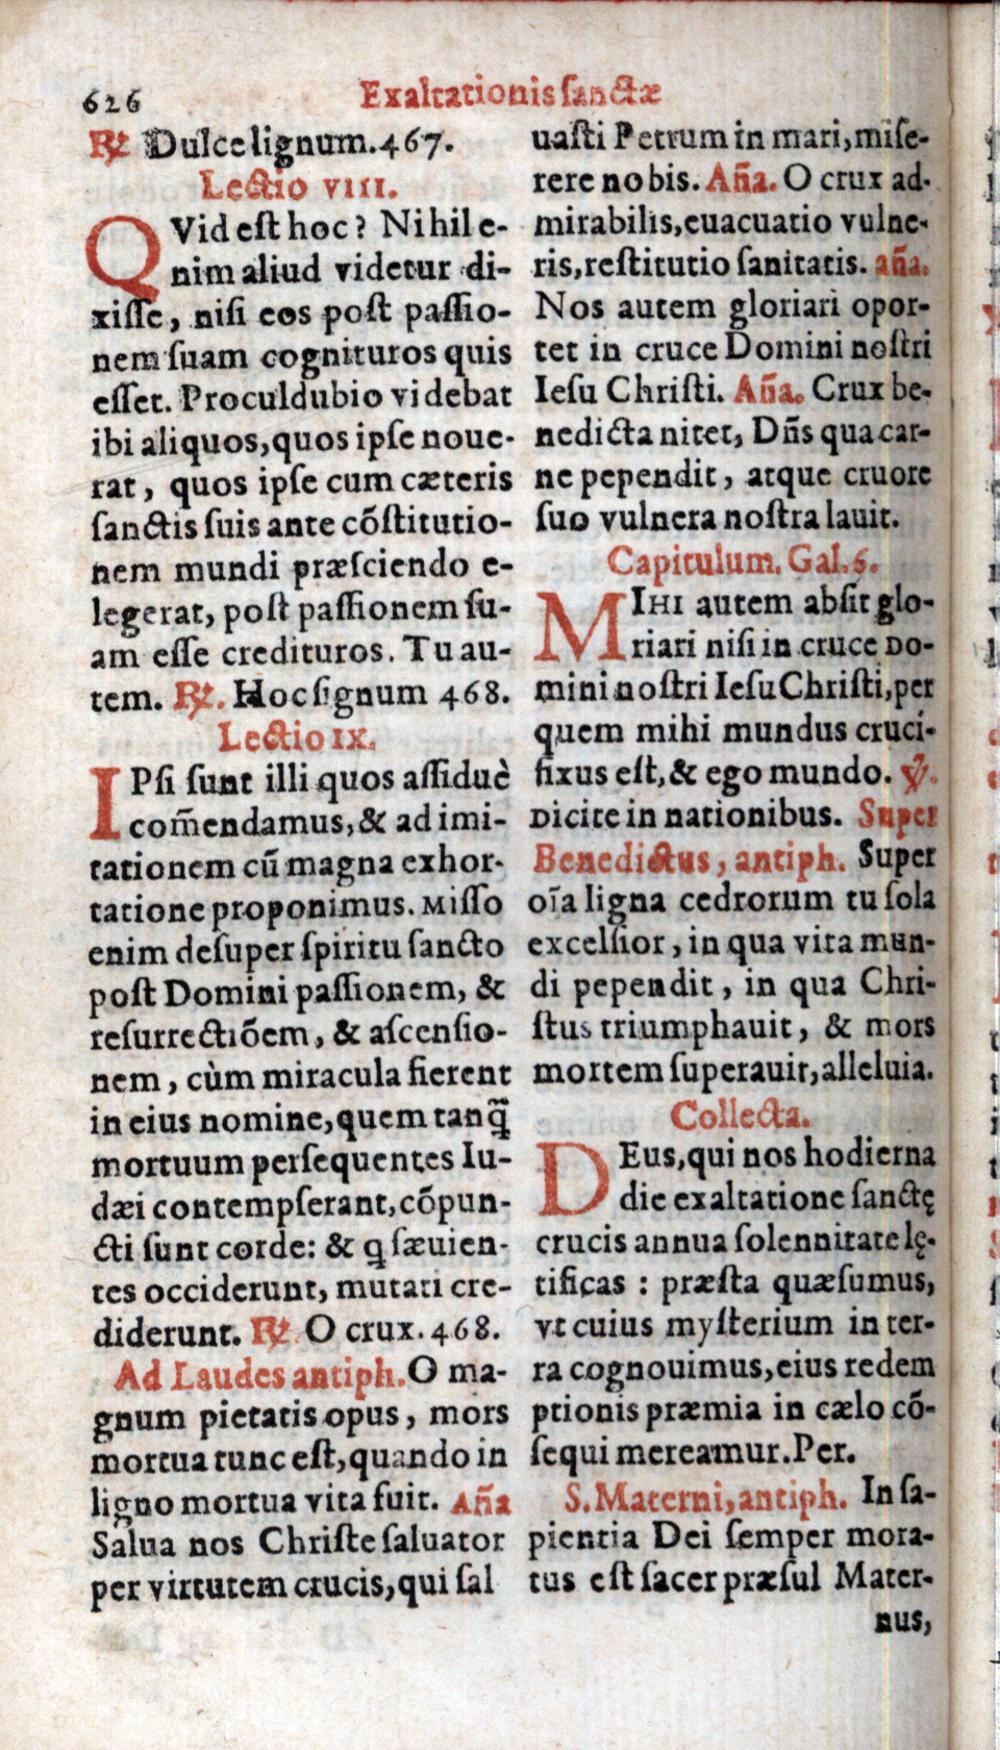 626
Exaltationis sanctæ
℟ Dulce lignum.467.
Lectio VIII.
QVid est hoc? Nihil e-
nim aliud videtur di-
xisse, nisi eos post passio-
nem suam cognituros quis
esset. Proculdubio videbat
ibi aliquos,quos ipse noue-
rat, quos ipse cum cæteris
sanctis suis ante cõstitutio-
nem mundi præsciendo e-
legerat, post passionem su-
am esse credituros. Tu au-
tem. ℟. Hoc signum 468.
Lectio IX.
IPsi sunt illi quos assiduè
com̃endamus,& ad imi-
tationem cũ magna exhor-
tatione proponimus. Misso
enim desuper spiritu sancto
post Domini passionem, &
resurrectiõem, & ascensio-
nem, cùm miracula fierent
in eius nomine,quem tanq̃
mortuum persequentes Iu-
dæi contempserant,cõpun-
cti sunt corde: & q sæuien-
tes occiderunt, mutati cre-
diderunt. ℟ O crux.468.
Ad Laudes antiph. O ma-
gnum pietatis opus, mors
mortua tunc est,quando in
ligno mortua vita fuit. Añа
Salua nos Christe saluator
per virtutem crucis,qui sal
uasti Petrum in mari,mise-
rere nobis. Aña. O crux ad-
mirabilis,euacuatio vulne-
ris,restitutio sanitatis. aña.
Nos autem gloriari opor-
tet in cruce Domini nostri
Iesu Christi. Aña. Crux be-
nedicta nitet, Dñs qua car-
ne pependit, atque cruore
suo vulnera nostra lauit.
Capitulum. Gal.6.
MIHI autem absit glo-
riari nisi in cruce Do-
mini nostri Iesu Christi,per
quem mihi mundus cruci-
fixus est,& ego mundo. ℣.
Dicite in nationibus. Super
Benedictus, antiph. Super
oĩa ligna cedrorum tu sola
excelsior, in qua vita mun-
di pependit, in qua Chri-
stus triumphauit, & mors
mortem superauit,alleluia.
Collecta.
DEus,qui nos hodierna
die exaltatione sanctę
crucis annua solennitate lę-
tificas : præsta quæsumus,
vt cuius mysterium in ter-
ra cognouimus,eius redem
ptionis præmia in cælo cõ-
sequi mereamur. Per.
S. Materni, antiph. In sa-
pientia Dei semper mora-
tus est sacer præsul Mater-
nus,